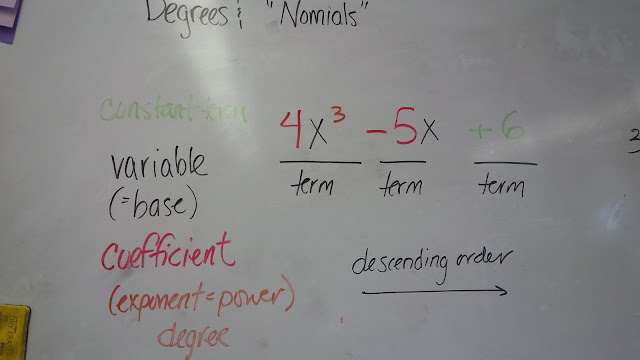 Degrees & "Nomials"
constant term
4x³ -5x +6
variable
(=base)
term term term
coefficient
descending order
(exponent=power)
degree